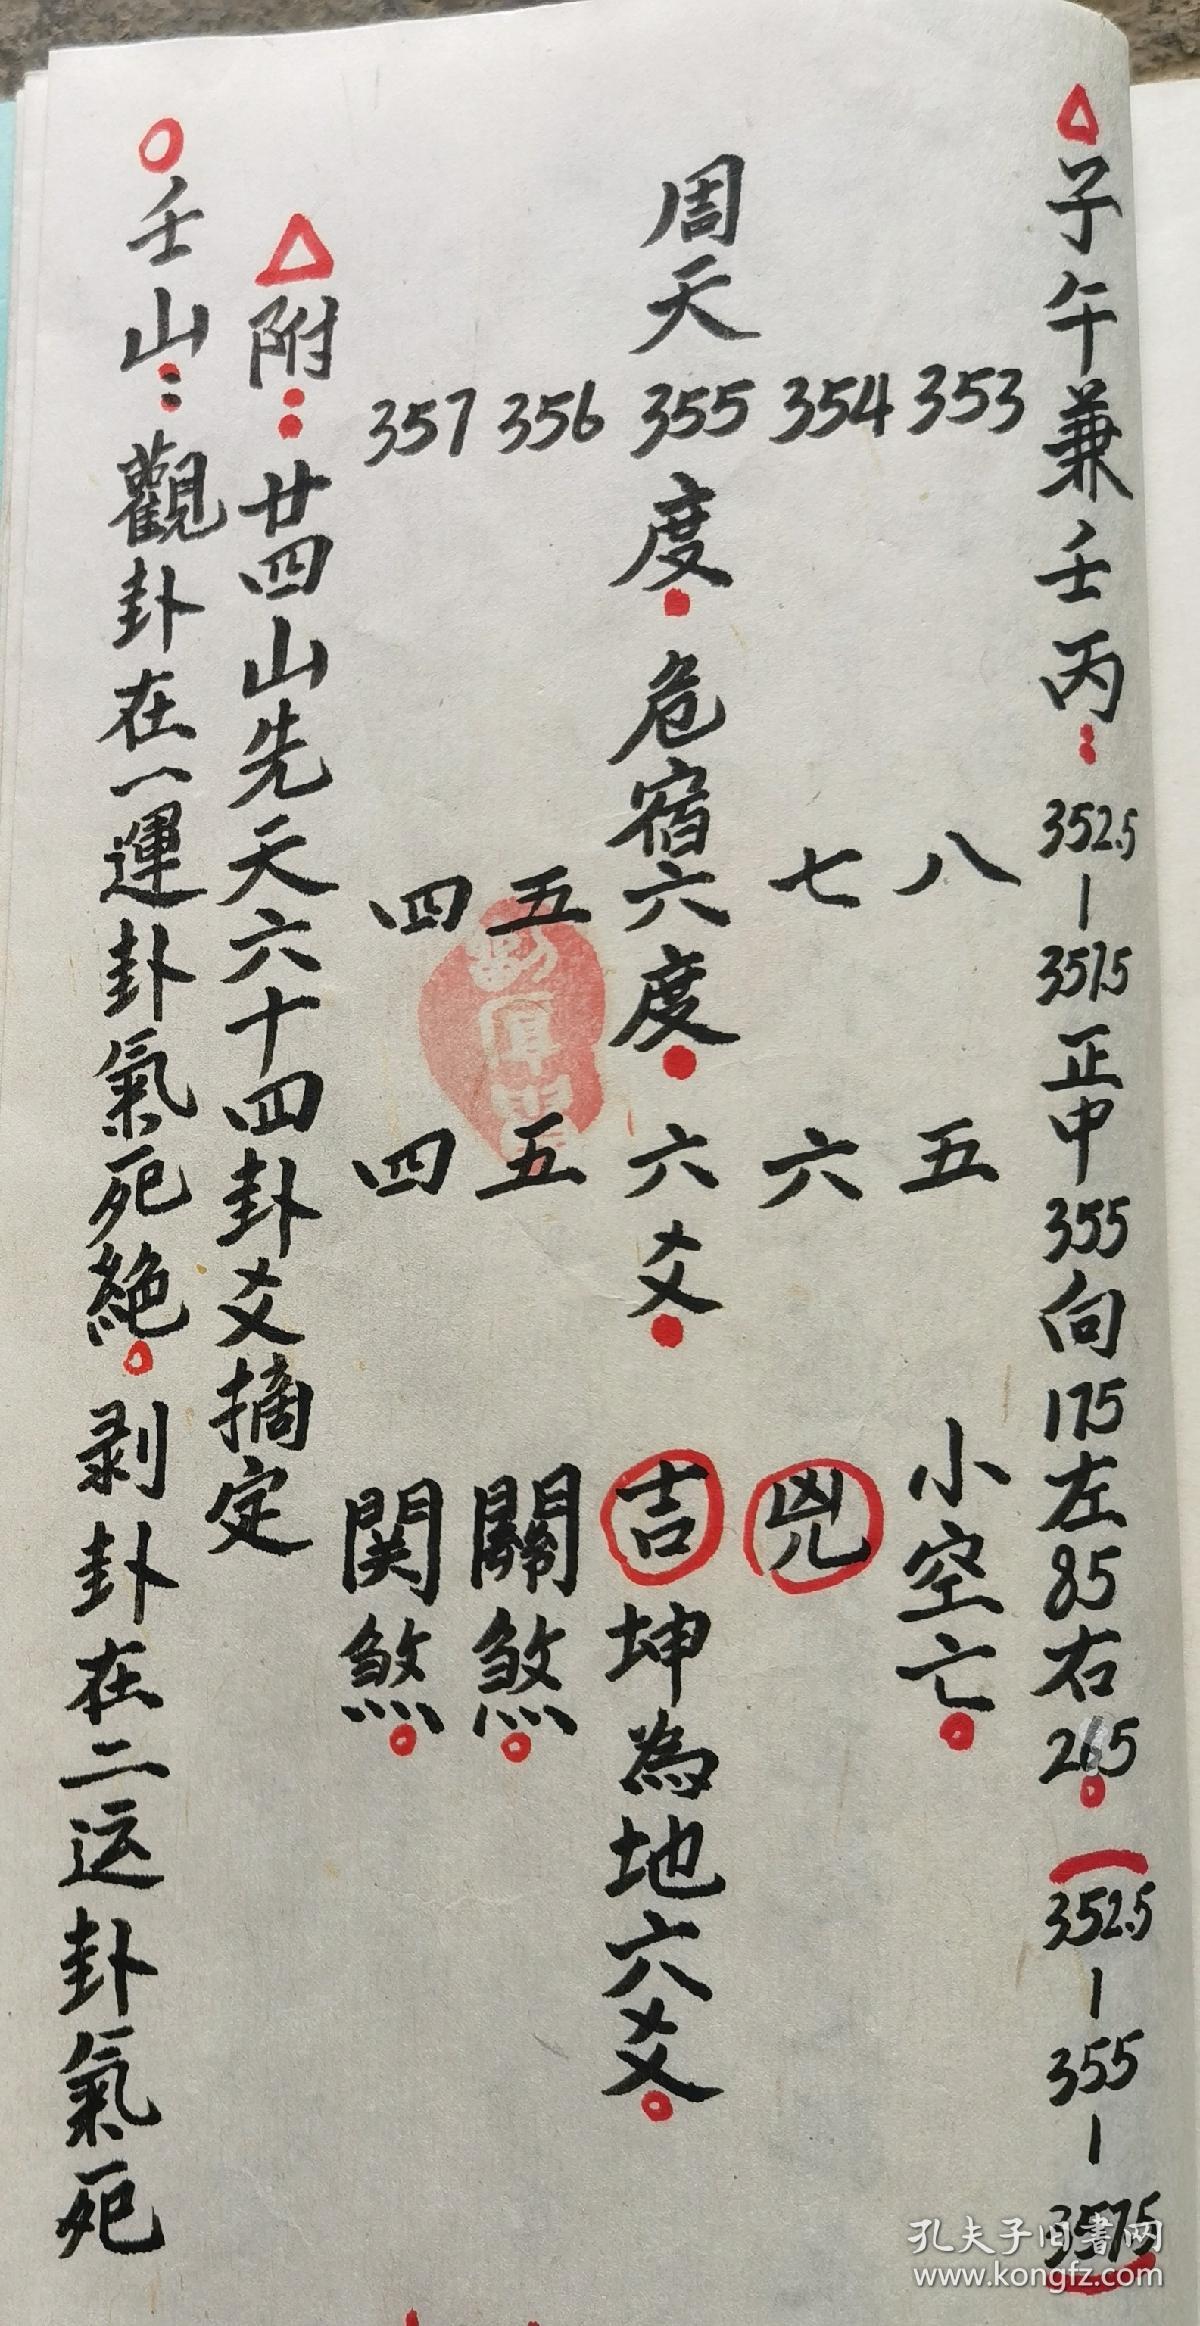 △子午兼壬丙：352.5—357.5正中355向175左85右265。（352.5—355—357.5）
353 八 五 小空亡。
354 七 六 兇
周天355度。危宿六度。六爻。吉坤為地六爻。
356 五 五 關煞。
357 四 四 関煞。
△附：廿四山先天六十四卦爻摘定
○壬山：觀卦在一運卦氣死絕。剥卦在二运卦氣死
孔夫子旧書网
www.kongfz.com